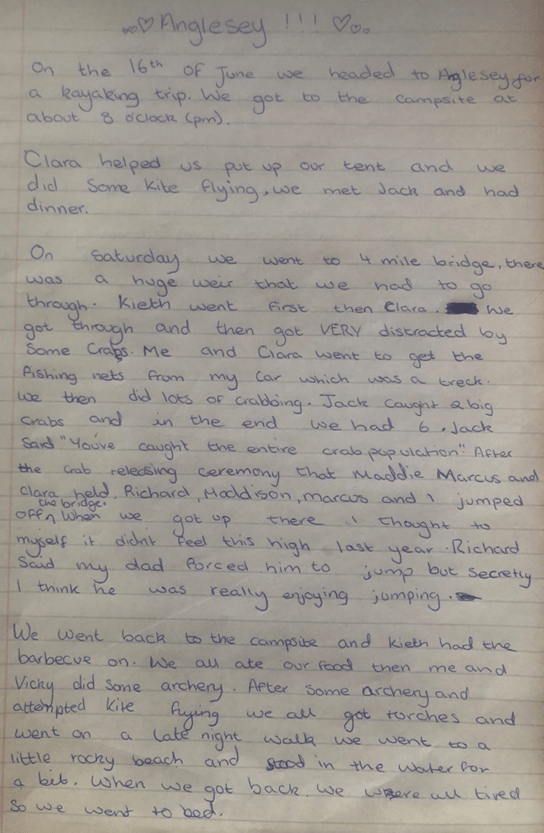 Anglesey !!!
On the 16th of June we headed to Anglesey for
a kayaking trip. We got to the campsite at
about 8 o'clock (pm).
Clara helped us put up our tent and we
did some kite flying, we met Jack and had
dinner.
On Saturday we went to 4 mile bridge, there
was a huge weir that we had to go
through. Kieth went first then Clara. We
got through and then got VERY distracted by
some crabs. Me and Clara went to get the
fishing nets from my car which was a treck.
we then did lots of crabbing. Jack caught 2 big
crabs and in the end we had 6. Jack
said "You've caught the entire crab population" After
the crab releasing ceremony that Maddie Marcus and
Clara held, Richard, Maddison, marcus and I jumped
off the bridge. When we got up there I thought to
myself it didnt feel this high last year. Richard
said my dad forced him to jump but secretly
I think he was really enjoying jumping.
We went back to the campsite and Kieth had the
barbecue on. We all ate our food then me and
Vicky did some archery. After some archery and
attempted kite flying we all got torches and
went on a late night walk we went to a
little rocky beach and stood in the water for
a bit. When we got back we were all tired
so we went to bed.